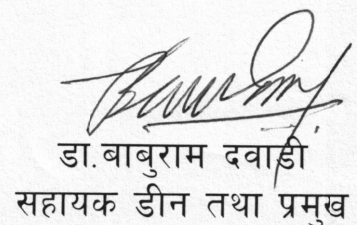 डा.बाबुराम दवाडी
सहायक डीन तथा प्रमुख